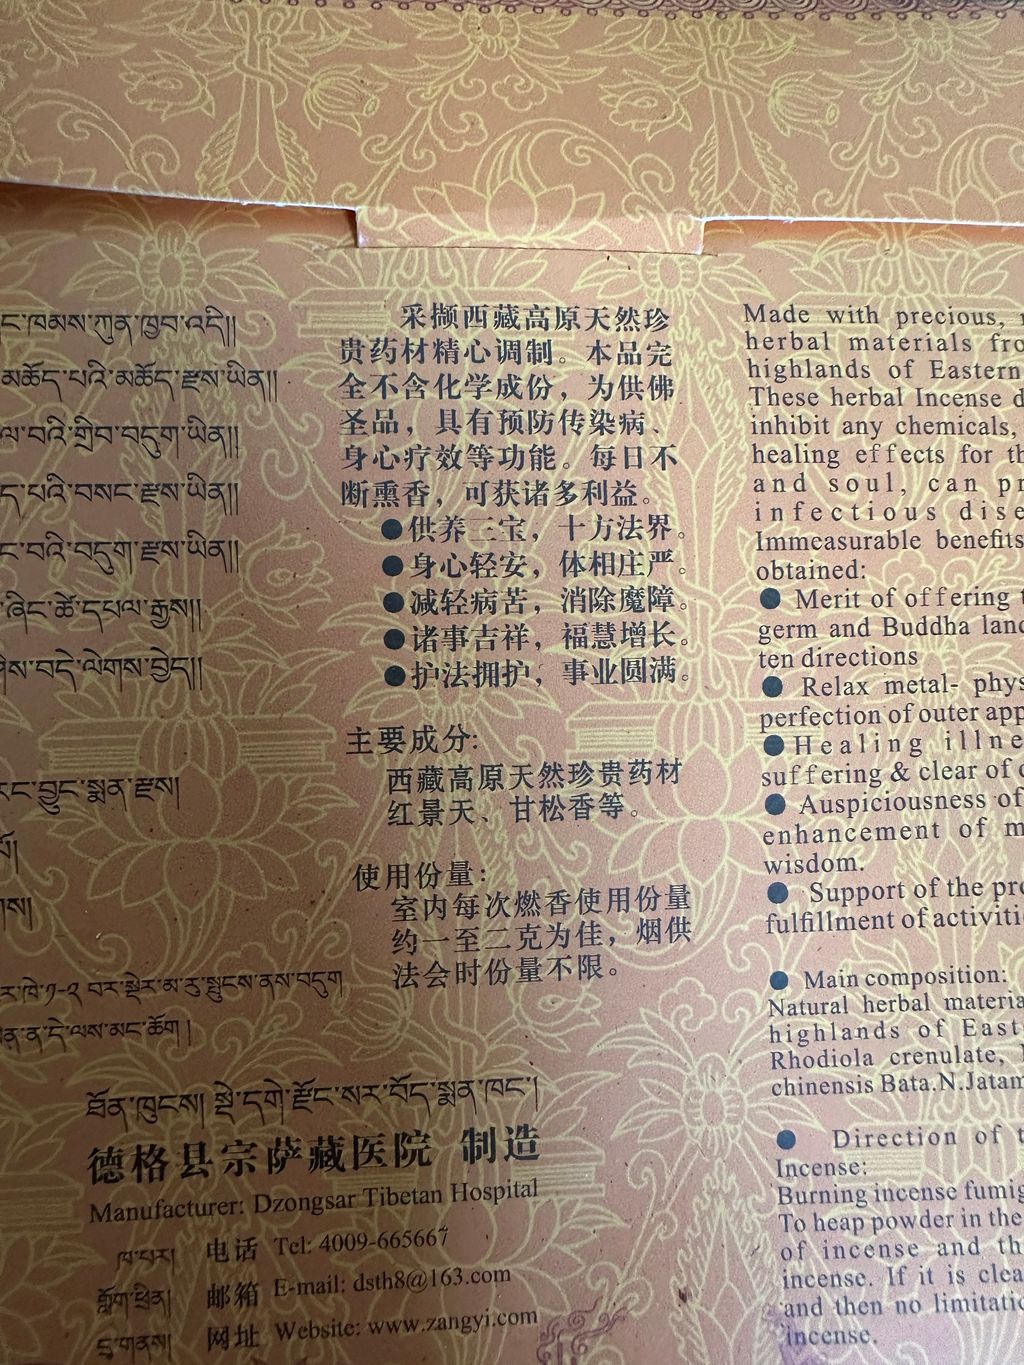 ང་ཁམས་ཀུན་ཁྱབ་འདི།།
མཆོད་པའི་མཆོད་རྫས་ཡིན།།
ལ་བའི་གྲིབ་བདུག་ཡིན།།
ད་པའི་བསང་རྫས་ཡིན།།
ང་བའི་བདུག་རྫས་ཡིན།།
ཞིང་ཚེ་དཔལ་རྒྱས།།
ཤིས་བདེ་ལེགས་བྱེད།།
རང་བྱུང་སྨན་རྫས།
ར་ཁེ་༡-༢ བར་སྡེར་མ་རུ་སྤུངས་ནས་བདུག
ན་ན་དེ་ལས་མང་ཆོག །
采撷西藏高原天然珍
贵药材精心调制。本品完
全不含化学成份，为供佛
圣品，具有预防传染病、
身心疗效等功能。每日不
断熏香，可获诸多利益。
●供养三宝，十方法界。
●身心轻安，体相庄严。
●减轻病苦，消除魔障。
●诸事吉祥，福慧增长。
●护法拥护，事业圆满。
主要成分:
西藏高原天然珍贵药材
红景天、甘松香等。
使用份量:
室内每次燃香使用份量
约一至二克为佳，烟供
法会时份量不限。
Made with precious,
herbal materials fro
highlands of Eastern
These herbal Incense d
inhibit any chemicals,
healing effects for th
and soul, can pr
infectious dise
Immeasurable benefits
obtained:
● Merit of offering t
germ and Buddha land
ten directions
● Relax metal- phys
perfection of outer app
● Healing illne
suffering & clear of
● Auspiciousness of
enhancement of m
wisdom.
● Support of the pro
fulfillment of activiti
● Main composition:
Natural herbal materia
highlands of East
Rhodiola crenulate,
chinensis Bata.N.Jatam
● Direction of t
Incense:
Burning incense fumig
To heap powder in the
of incense and th
incense. If it is clea
and then no limitatio
incense.
ཐོན་ཁུངས། སྡེ་དགེ་རྫོང་སར་བོད་སྨན་ཁང་།
德格县宗萨藏医院 制造
Manufacturer: Dzongsar Tibetan Hospital
ཁ་པར། 电话 Tel: 4009-665667
གློག་ཕྲིན། 邮箱 E-mail: dsth8@163.com
དྲ་གནས། 网址 Website: www.zangyi.com